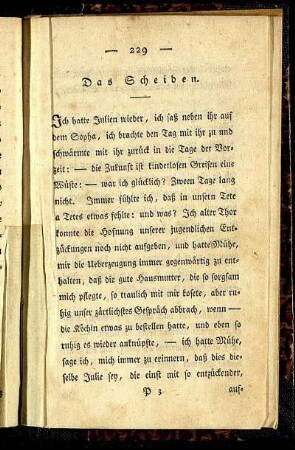 — 229 —
Das Scheiden.
Ich hatte Julien wieder, ich saß neben ihr auf
dem Sopha, ich brachte den Tag mit ihr zu und
schwärmte mit ihr zurück in die Tage der Vor-
zeit: — die Zukunft ist kinderlosen Greisen eine
Wüste: — war ich glücklich? Zween Tage lang
nicht. Immer fühlte ich, daß in unsern Tete
a Tetes etwas fehlte: und was? Ich alter Thor
konnte die Hofnung unserer jugendlichen Ent-
zückungen noch nicht aufgeben, und hatte Mühe,
mir die Ueberzeugung immer gegenwärtig zu ent-
halten, daß die gute Hausmutter, die so sorgsam
mich pflegte, so traulich mit mir kosete, aber ru-
hig unser zärtlichstes Gespräch abbrach, wenn —
die Köchin etwas zu bestellen hatte, und eben so
ruhig es wieder anknüpfte, — ich hatte Mühe,
sage ich, mich immer zu erinnern, daß dies die-
selbe Julie sey, die einst mit so entzückender,
P 3 auf-